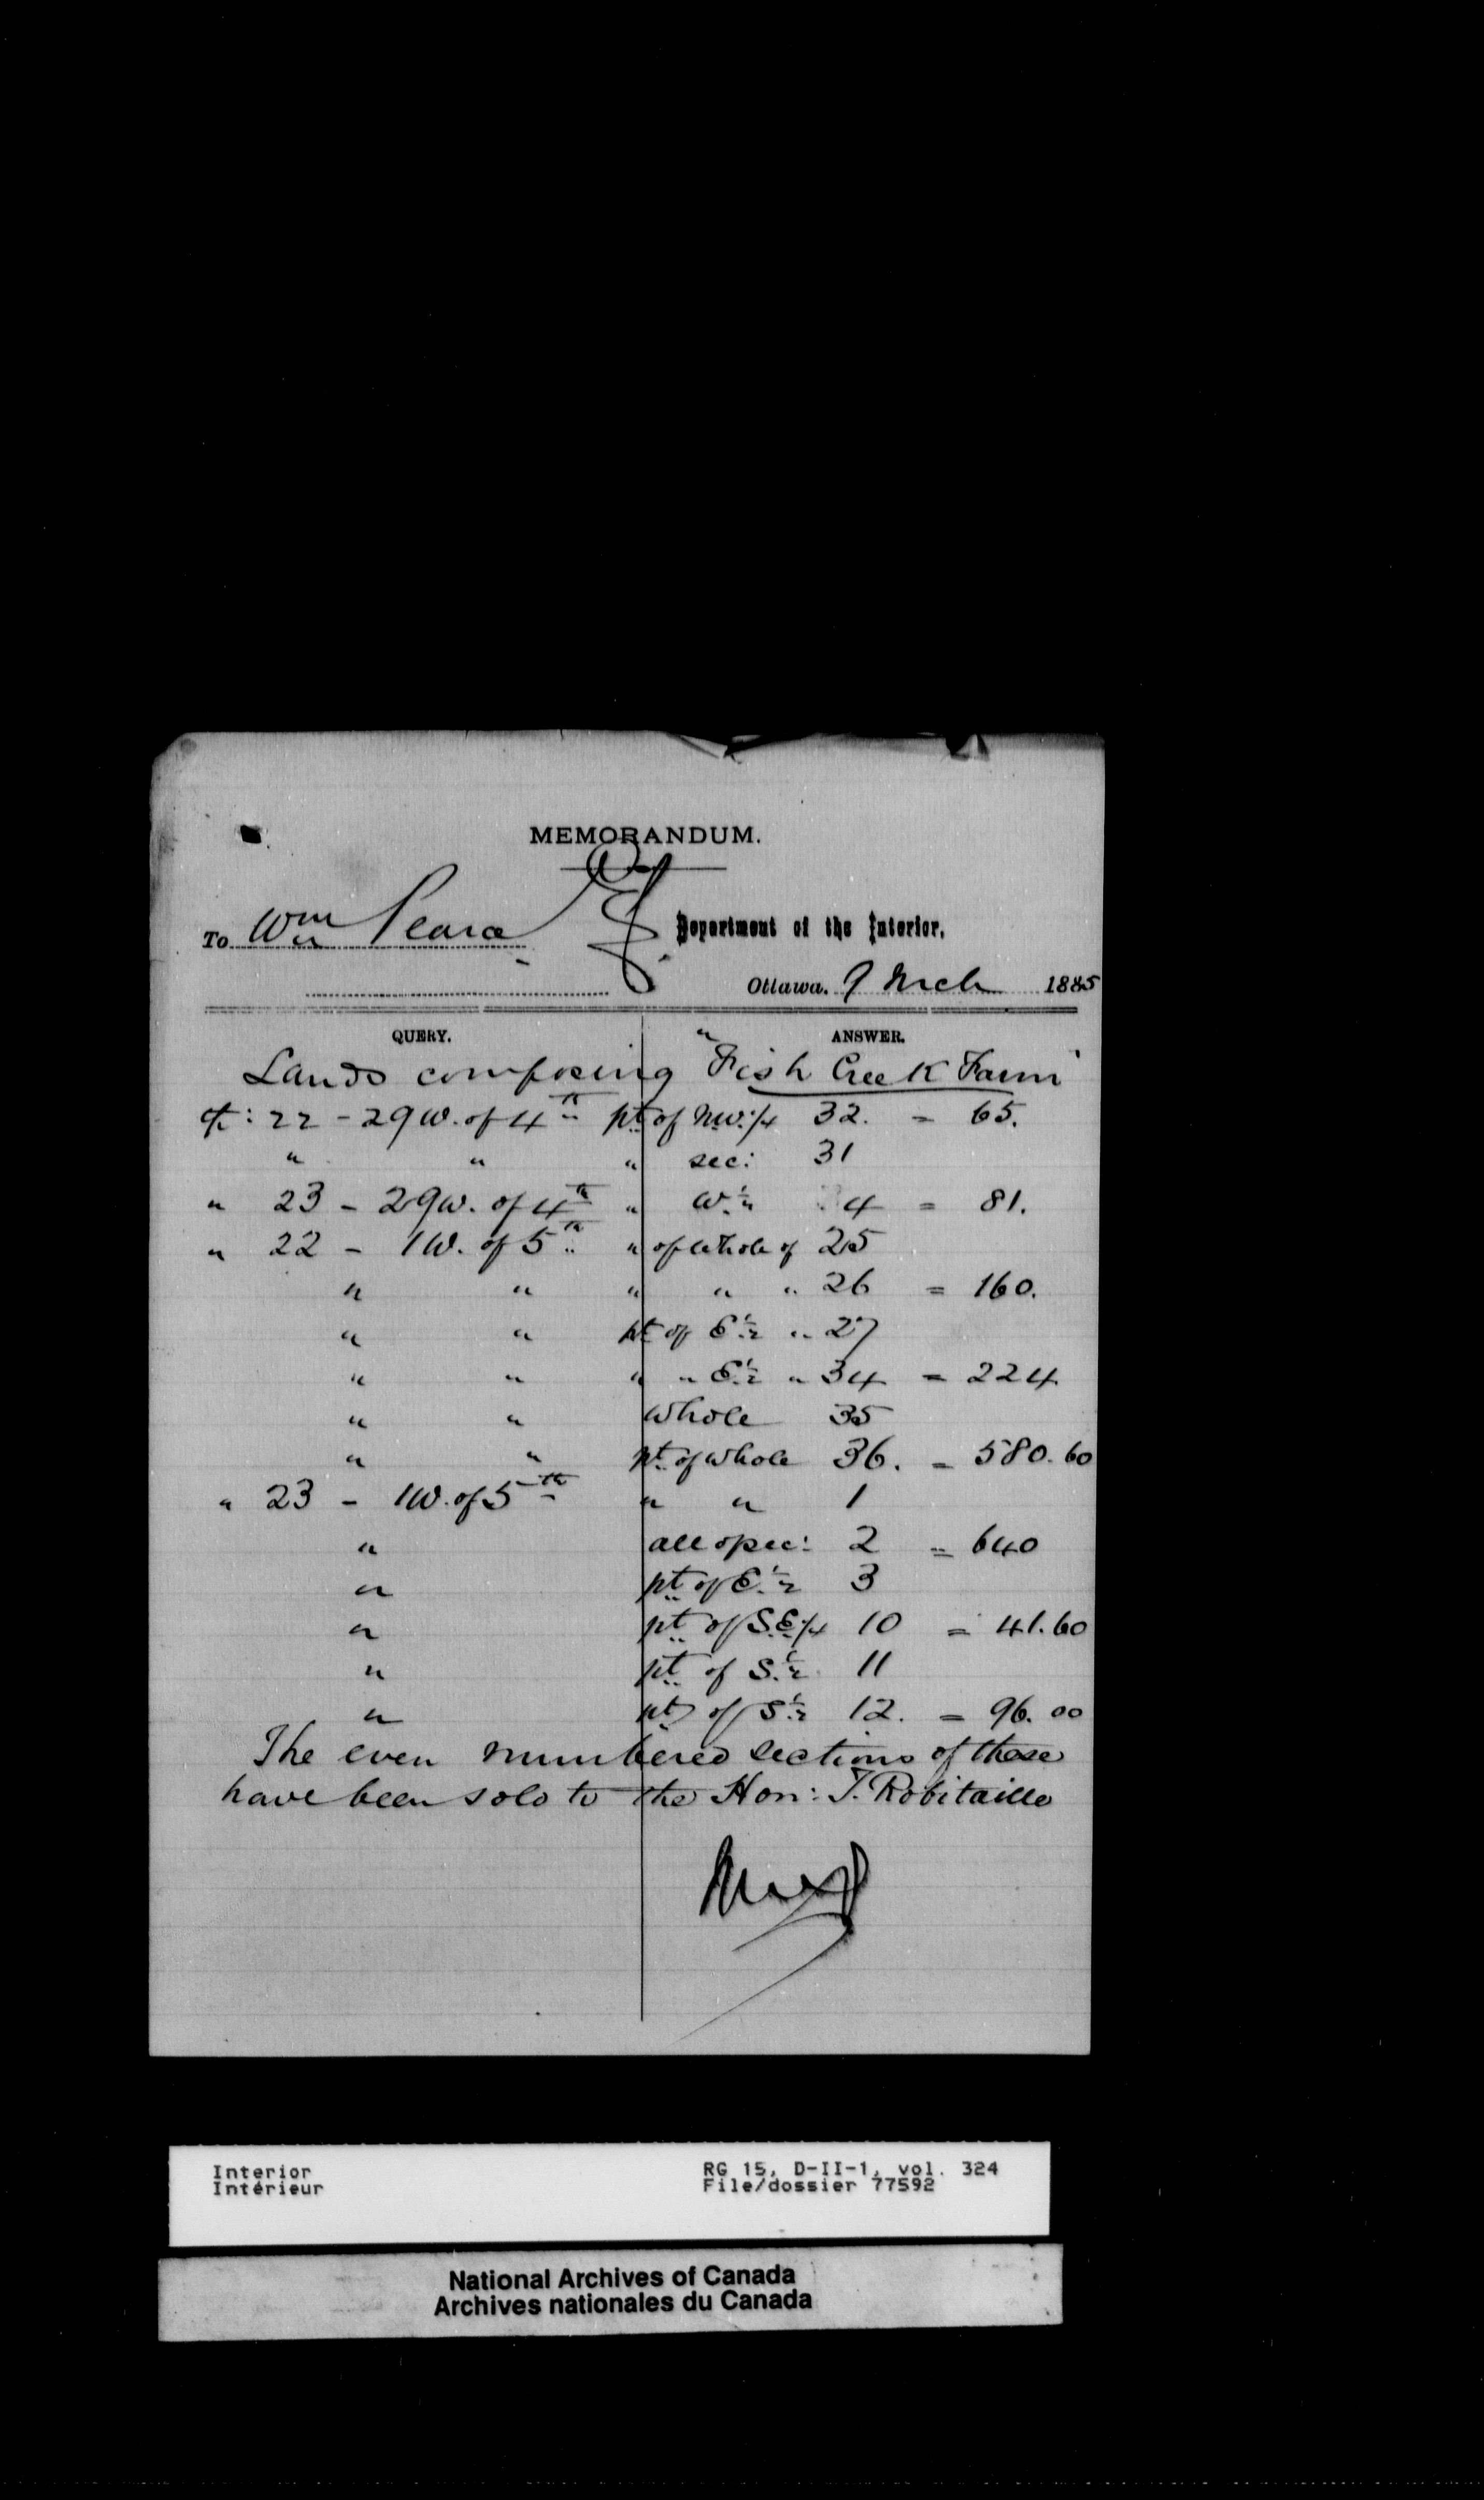 MEMORANDUM.
To Wm Pearce Esq.
Department of the Interior,
Ottawa. 9 Mch 1885
QUERY. ANSWER.
Lands composing "Fish Creek Farm"
: 22 - 29 W. of 4th pt of N.W. 1/4 32. = 65.
" " " sec: 31
" 23 - 29 W. of 4th " W. 1/2 4 = 81.
" 22 - 1 W. of 5th " of whole of 25
" " " " " 26 = 160.
" " pt of E 1/2 " 27
" " " " E 1/2 " 34 = 224.
" " whole 35
" " pt of whole 36. = 580.60
" 23 - 1 W. of 5th " " 1
" all of sec: 2 = 640
" pt of E. 1/2 3
" pt of S.E. 1/4 10 = 41.60
" pt of S. 1/2 11
" pt of S 1/2 12. = 96.00
The even numbered sections of these
have been sold to the Hon: T. Robitaille
Interior
Intérieur
RG 15, D-II-1, vol. 324
File/dossier 77592
National Archives of Canada
Archives nationales du Canada